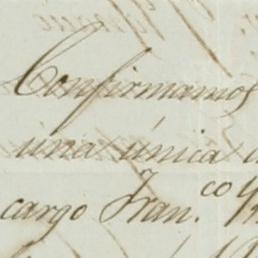 Confirmamos
una única
cargo Fran.co